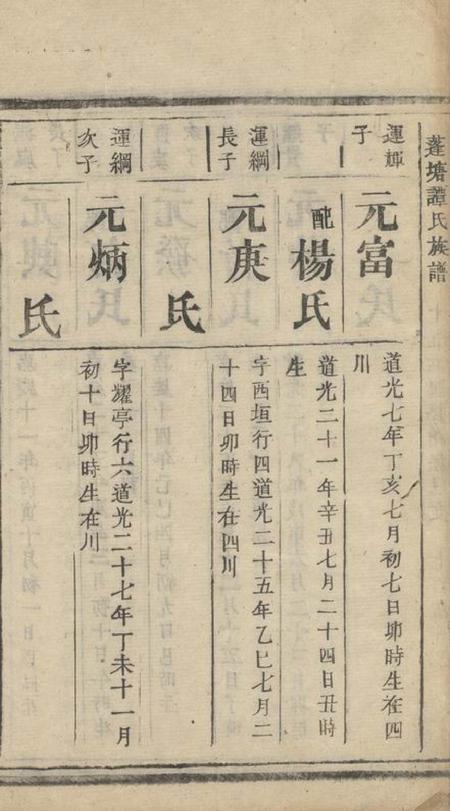 蓬塘譚氏族譜
運輝
子
元富
道光七年丁亥七月初七日卯時生在四
川
配楊氏
道光二十一年辛丑七月二十四日丑時
生
運綱
長子
元庚
字西垣行四道光二十五年乙巳七月二
十四日卯時生在四川
氏
運綱
次子
元炳
字耀亭行六道光二十七年丁未十一月
初十日卯時生在川
氏